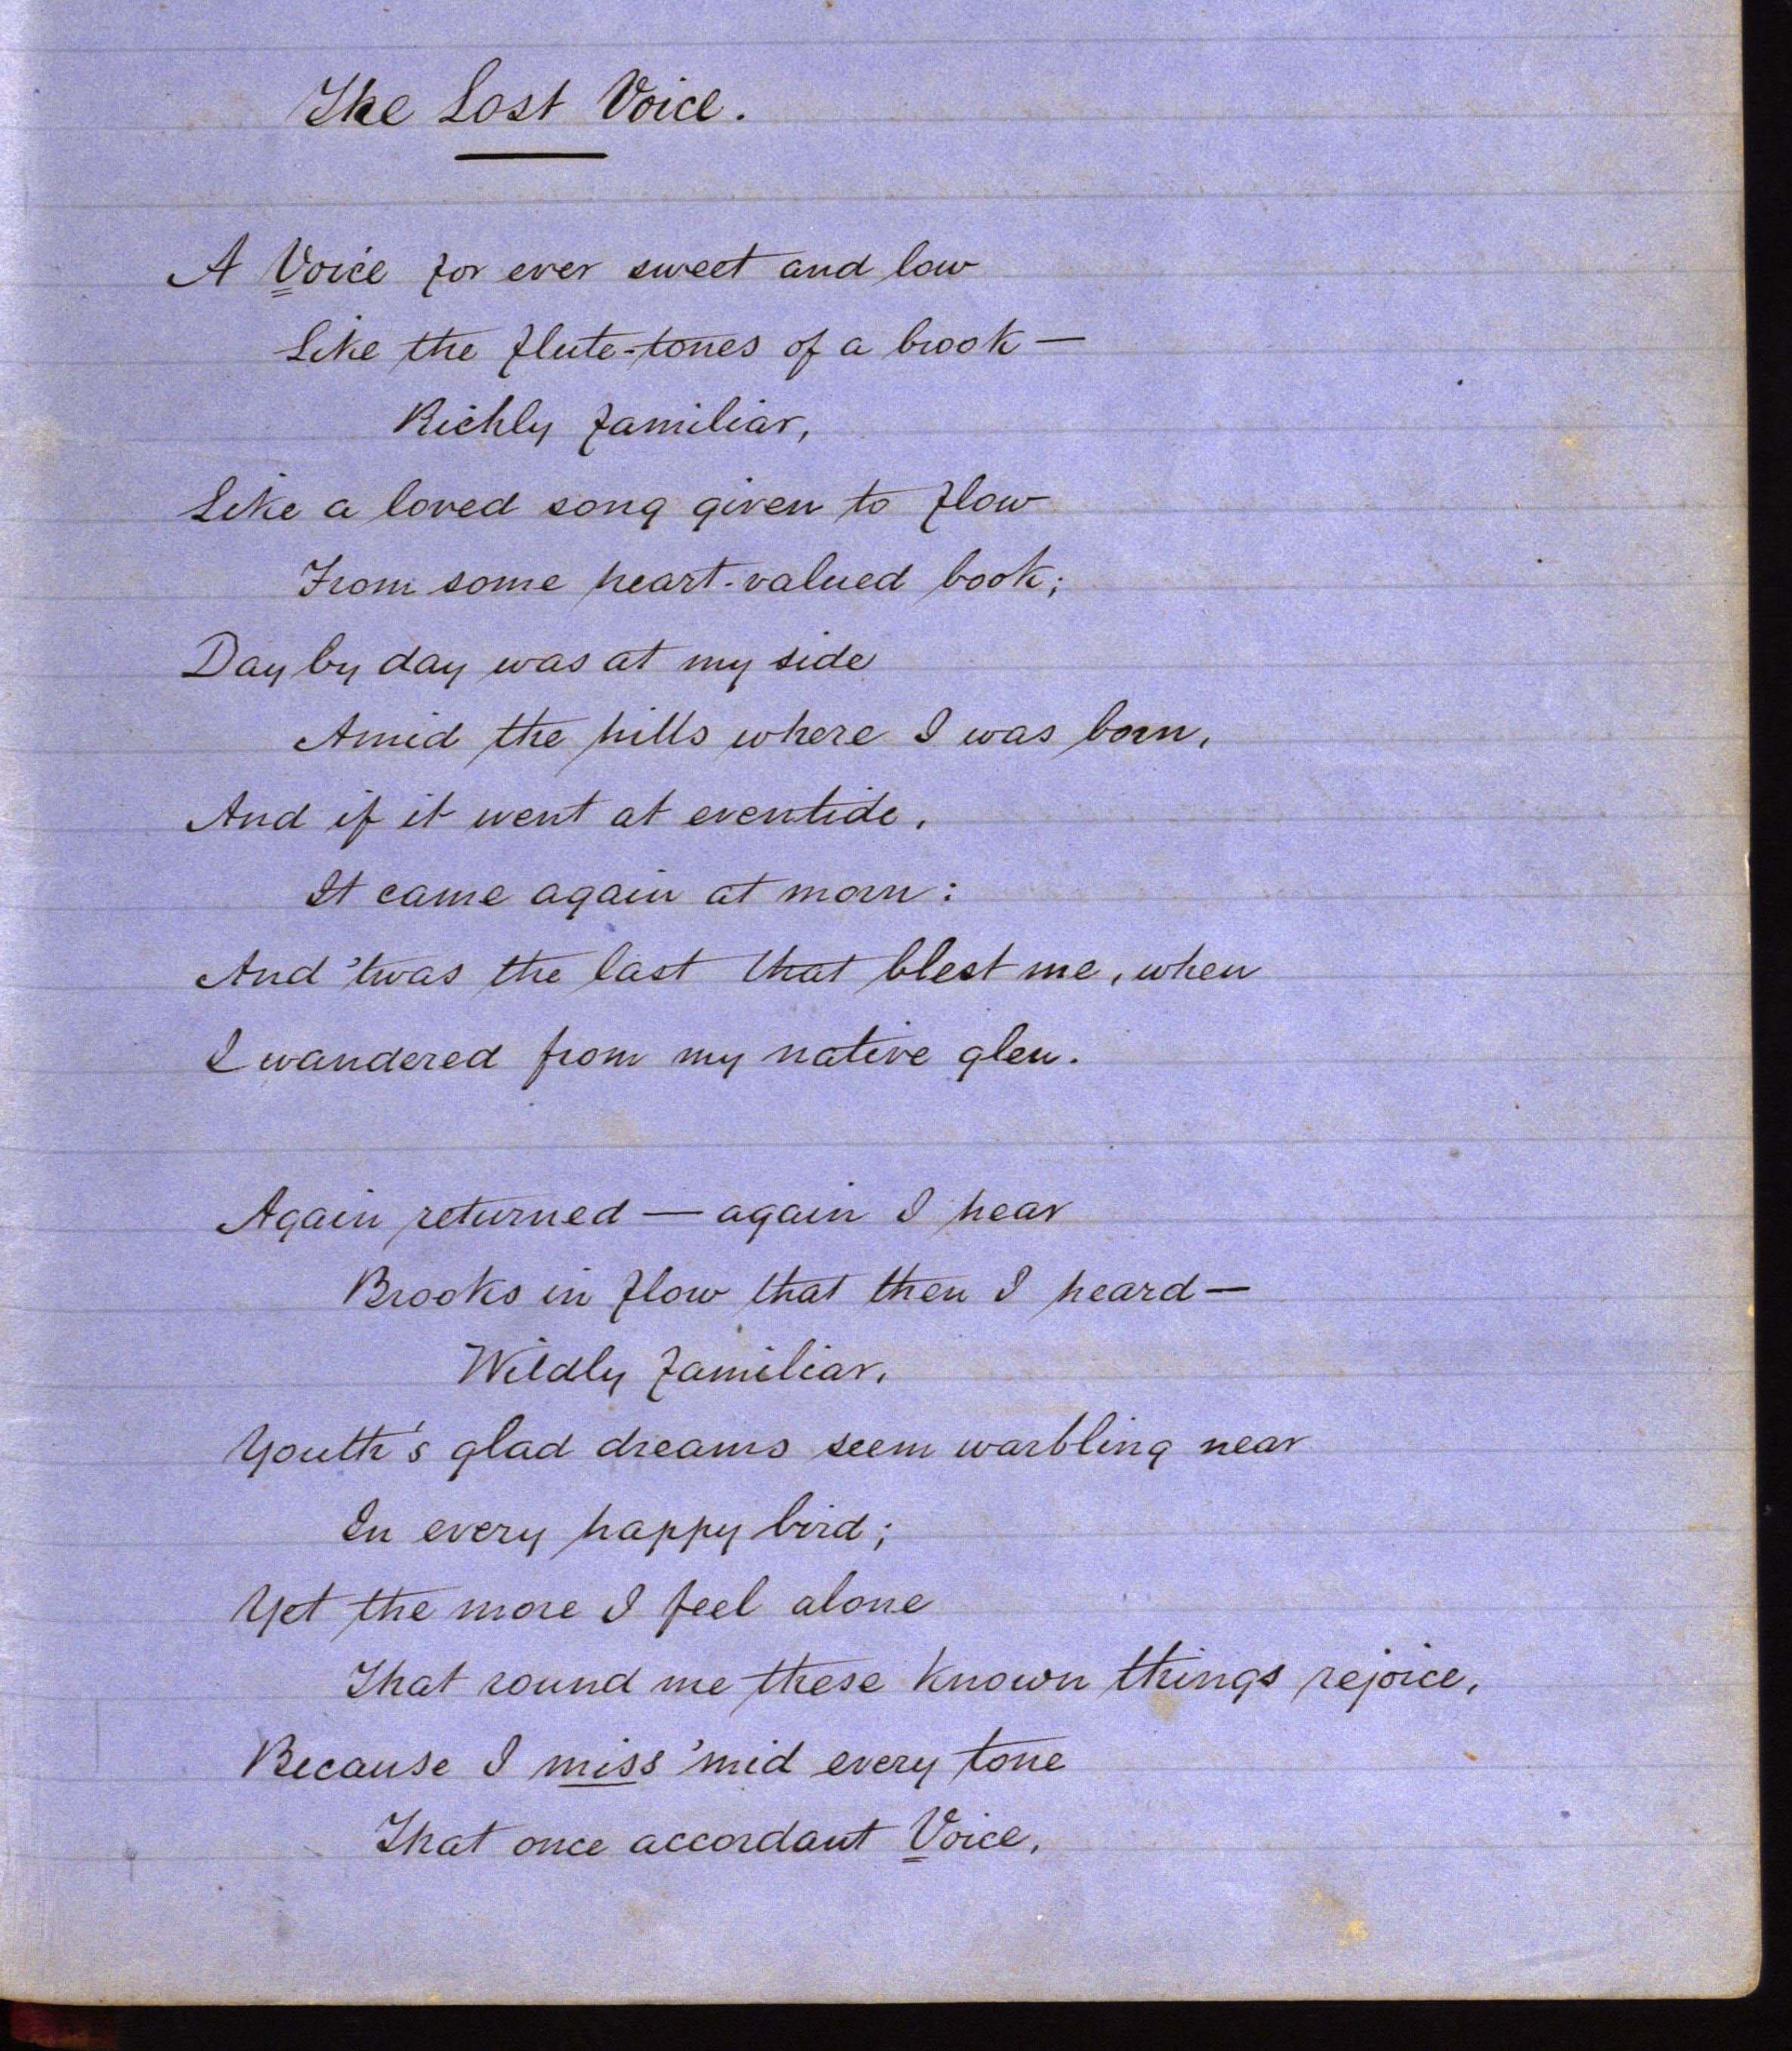 The Lost Voice.
A Voice for ever sweet and low
Like the flute-tones of a brook —
Richly familiar,
Like a loved song given to flow
From some heart-valued book;
Day by day was at my side
Amid the hills where I was born,
And if it went at eventide,
It came again at morn:
And 'twas the last that blest me, when
I wandered from my native glen.
Again returned — again I hear
Brooks in flow that then I heard —
Wildly familiar,
Youth's glad dreams seem warbling near
In every happy bird;
Yet the more I feel alone
That round me these known things rejoice,
Because I miss 'mid every tone
That once accordant Voice,